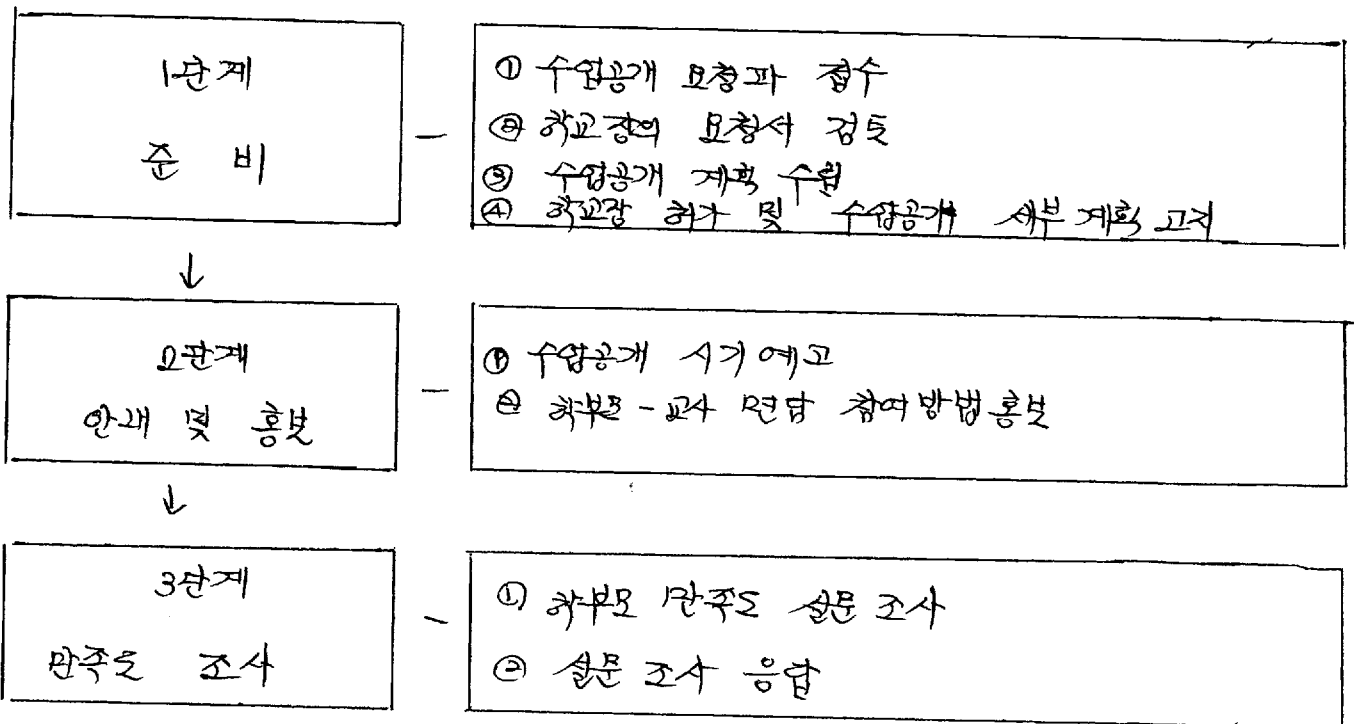 1단계
준 비
① 수업공개 요청파 접수
② 학교장의 요청서 검토
③ 수업공개 계획 수립
④ 학교장 허가 및 수업공개 세부 계획 고지
↓
2단계
안내 및 홍보
① 수업공개 시기 예고
② 학부모-교사 면담 참여 방법 홍보
↓
3단계
만족도 조사
① 학부모 만족도 설문 조사
② 설문 조사 응답